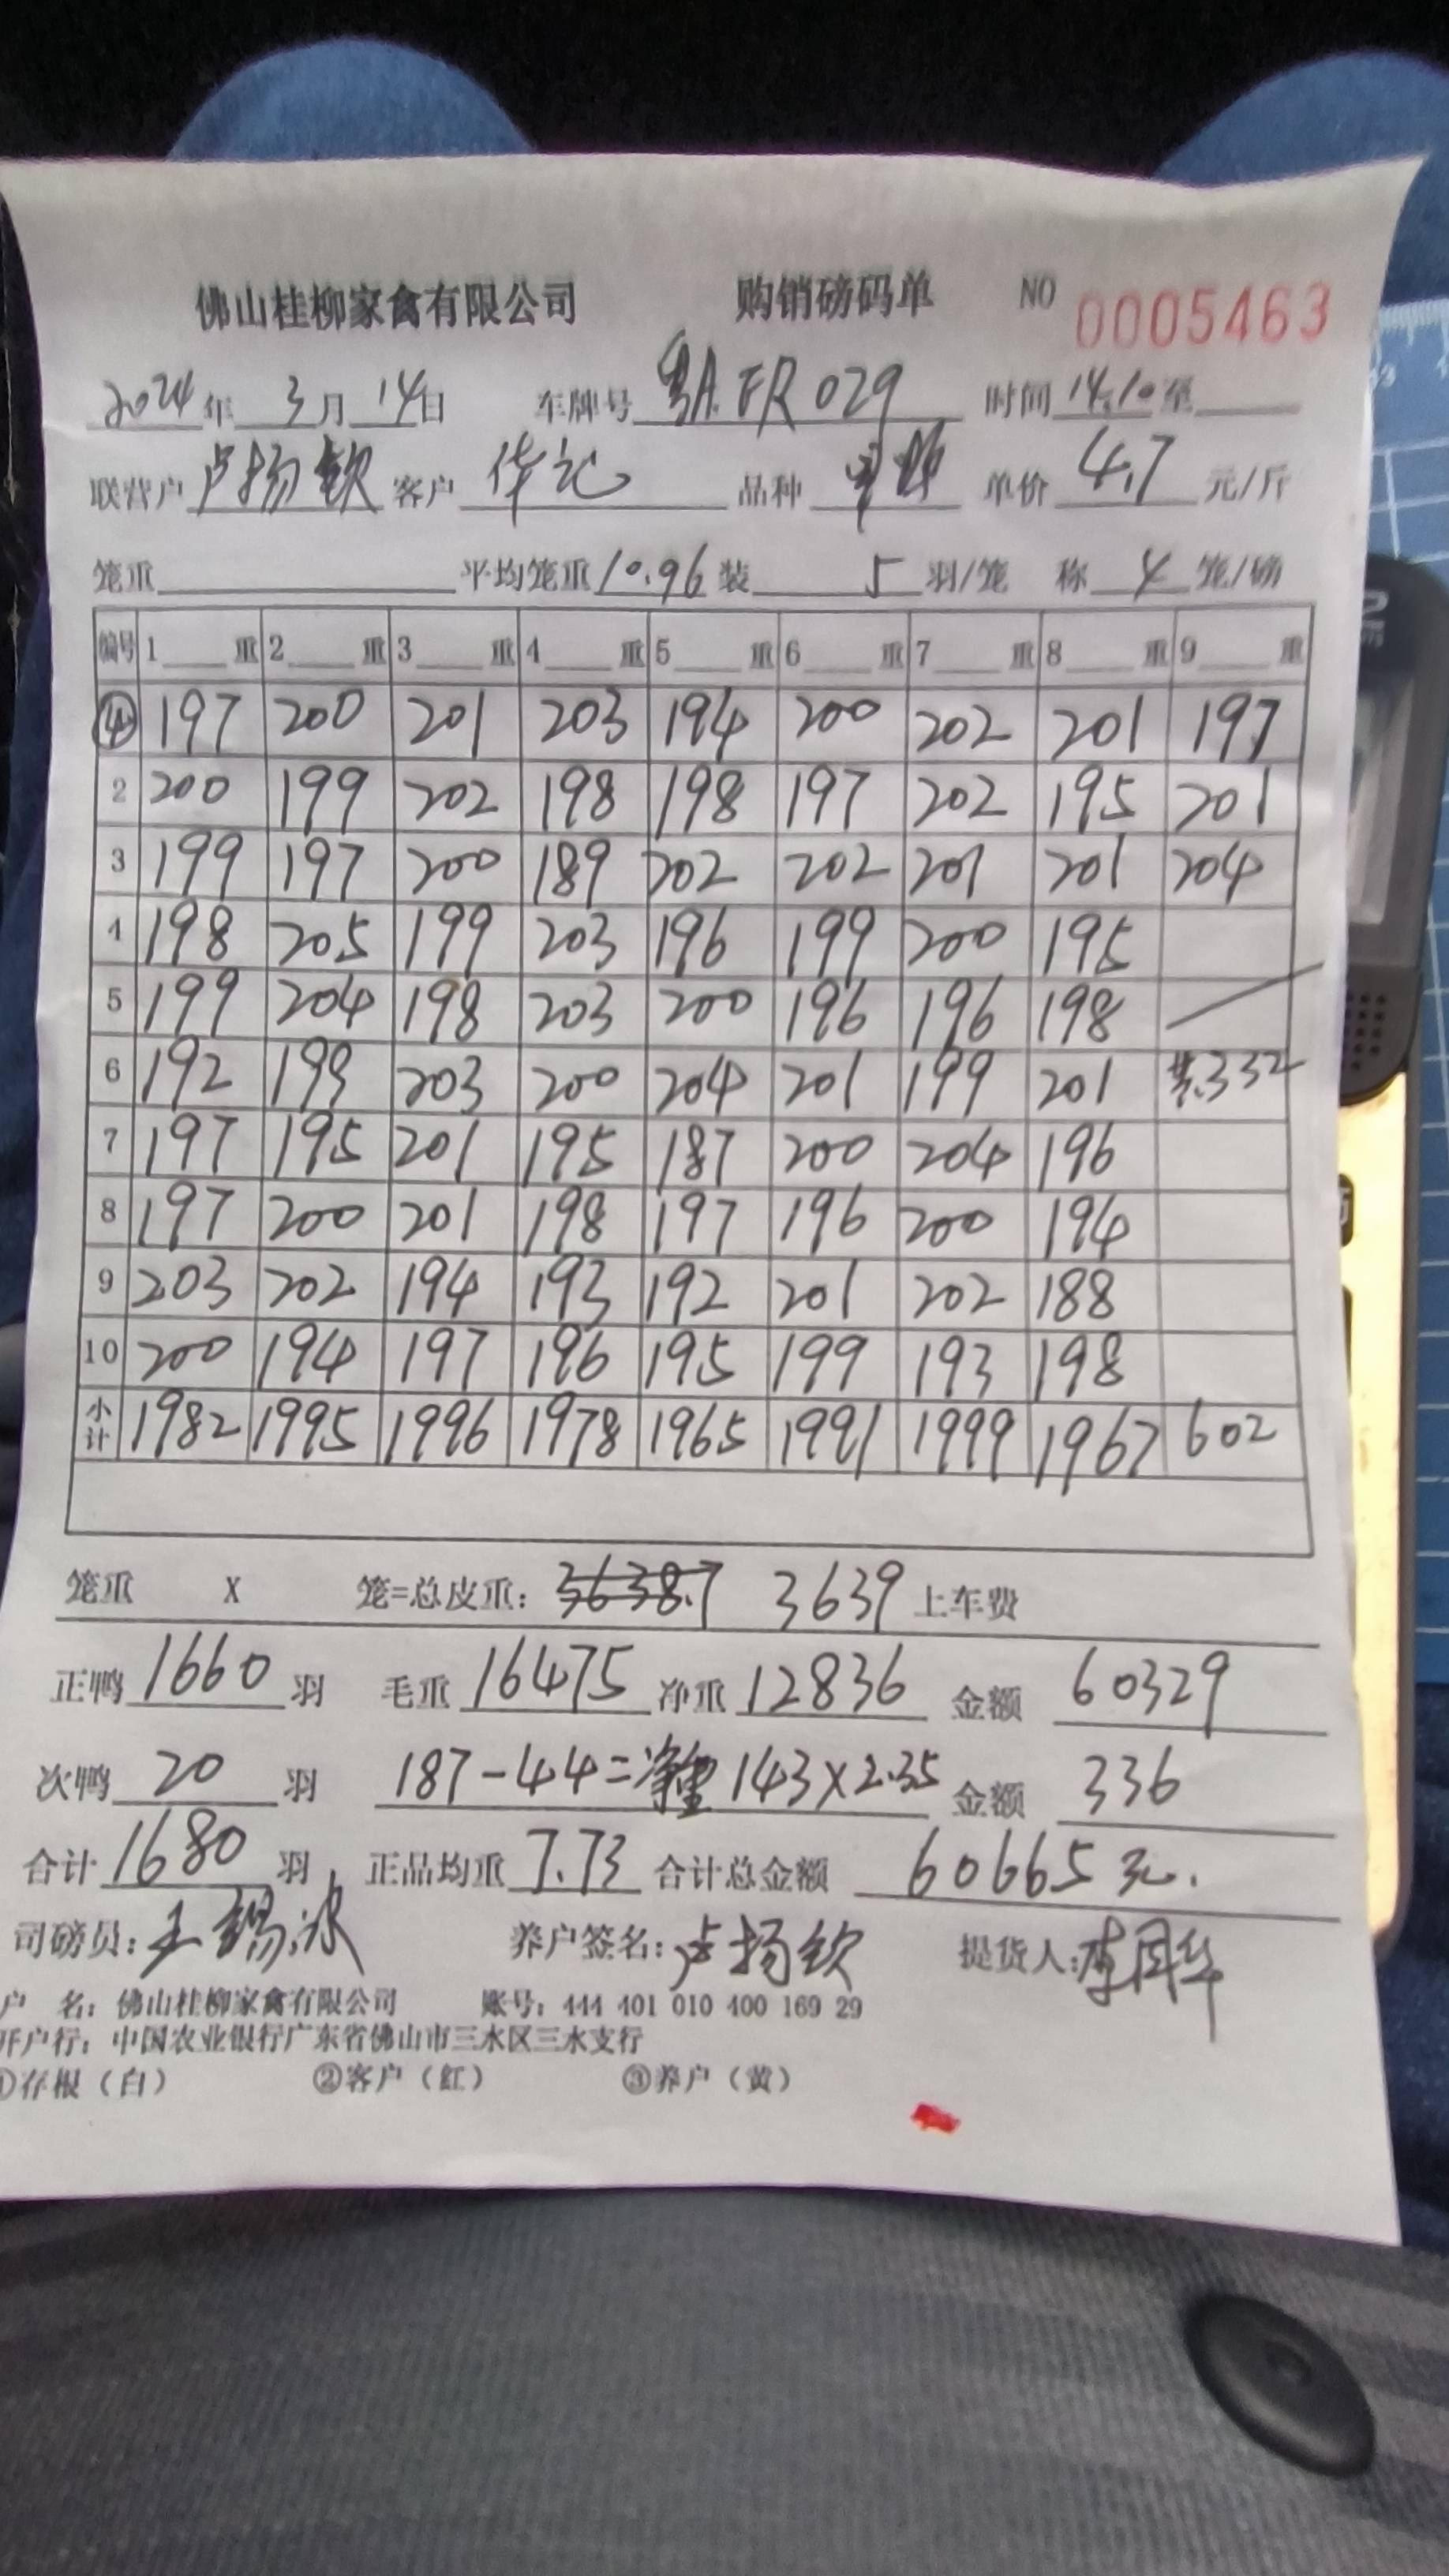 佛山桂柳家禽有限公司 购销磅码单 NO 0005463
2024年 3月 14日 车牌号 粤A FR029 时间 14.10 至
联营户 卢扬钦 客户 华记 品种 单价 4.7 元/斤
笼重 平均笼重 10.96 装 5 羽/笼 称 4 笼/磅
编号 1 重 2 重 3 重 4 重 5 重 6 重 7 重 8 重 9 重
④ 197 200 201 203 194 200 202 201 197
2 200 199 202 198 198 197 202 195 201
3 199 197 200 189 202 202 201 201 204
4 198 205 199 203 196 199 200 195
5 199 204 198 203 200 196 196 198
6 192 199 203 200 204 201 199 201 共.332
7 197 195 201 195 187 200 204 196
8 197 200 201 198 197 196 200 194
9 203 202 194 193 192 201 202 188
10 200 194 197 196 195 199 193 198
小计 1982 1995 1996 1978 1965 1991 1999 1967 602
笼重 X 笼=总皮重: 3638.7 3639 上车费
正鸭 1660 羽 毛重 16475 净重 12836 金额 60329
次鸭 20 羽 187-44=净重 143×2.35 金额 336
合计 1680 羽 正品均重 7.73 合计总金额 60665元.
司磅员: 王锡波 养户签名: 卢扬钦 提货人: 李国华
户 名: 佛山桂柳家禽有限公司 账号: 444 401 010 400 169 29
开户行: 中国农业银行广东省佛山市三水区三水支行
①存根（白） ②客户（红） ③养户（黄）